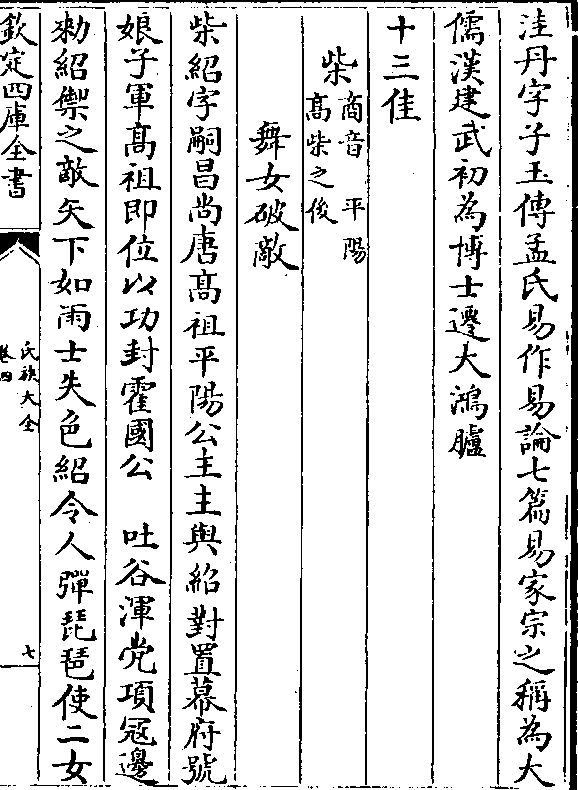 洼丹字子玉傳孟氏易作易論七篇易家宗之稱為大
儒漢建武初為博士遷大鴻臚
十三佳
柴
商音　平陽
高柴之後
舞女破敵
柴紹字嗣昌尚唐高祖平陽公主主與紹對置幕府號
娘子軍高祖即位以功封霍國公　吐谷渾党項寇邊
勑紹禦之敵矢下如雨士失色紹令人彈琵琶使二女
欽定四庫全書
氏族大全
卷四
七